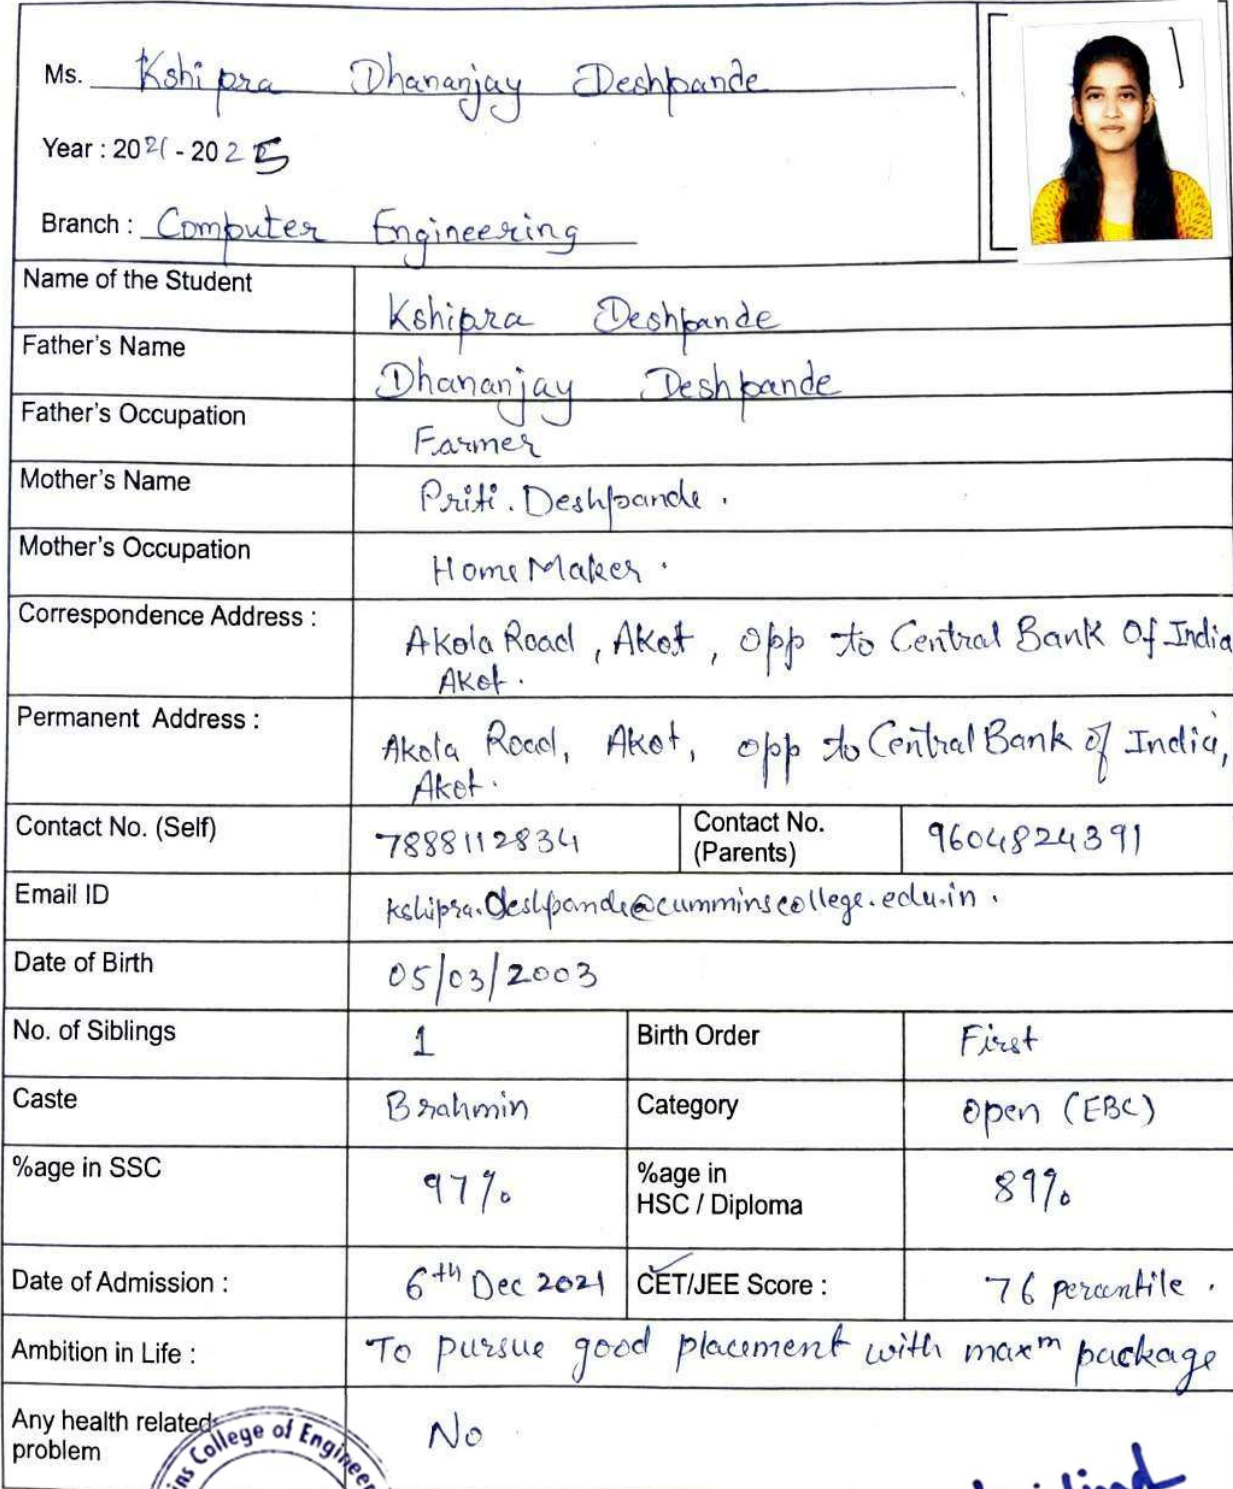 Ms. Kshipra Dhananjay Deshpande
Year : 2021 - 2025
Branch : Computer Engineering
Name of the Student Kshipra Deshpande
Father's Name Dhananjay Deshpande
Father's Occupation Farmer
Mother's Name Priti. Deshpande.
Mother's Occupation HomeMaker.
Correspondence Address : Akola Road, Akot, opp to Central Bank Of India
Akot.
Permanent Address : Akola Road, Akot, opp to Central Bank of India,
Akot.
Contact No. (Self) 7888112834 Contact No. (Parents) 9604824391
Email ID kshipra.deshpande@cumminscollege.edu.in.
Date of Birth 05/03/2003
No. of Siblings 1 Birth Order First
Caste Brahmin Category Open (EBC)
%age in SSC 97% %age in HSC / Diploma 89%
Date of Admission : 6th Dec 2021 CET/JEE Score : 76 percentile.
Ambition in Life : To pursue good placement with maxm package
Any health related problem No
College of Enginee